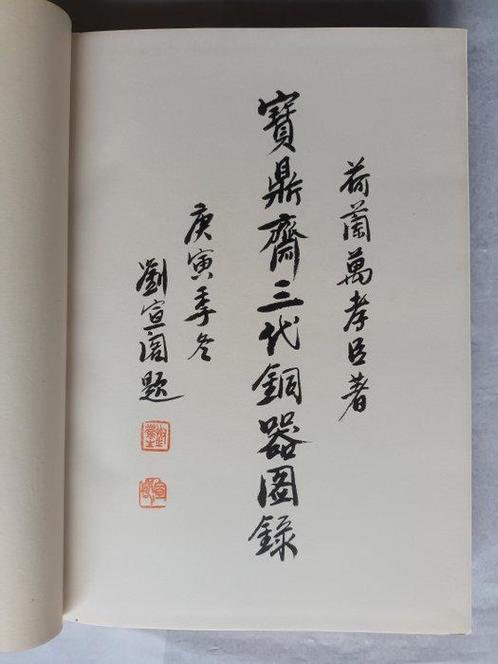 荷蘭萬孝臣著
寶鼎齋三代銅器圖錄
庚寅季冬
劉宣閣題